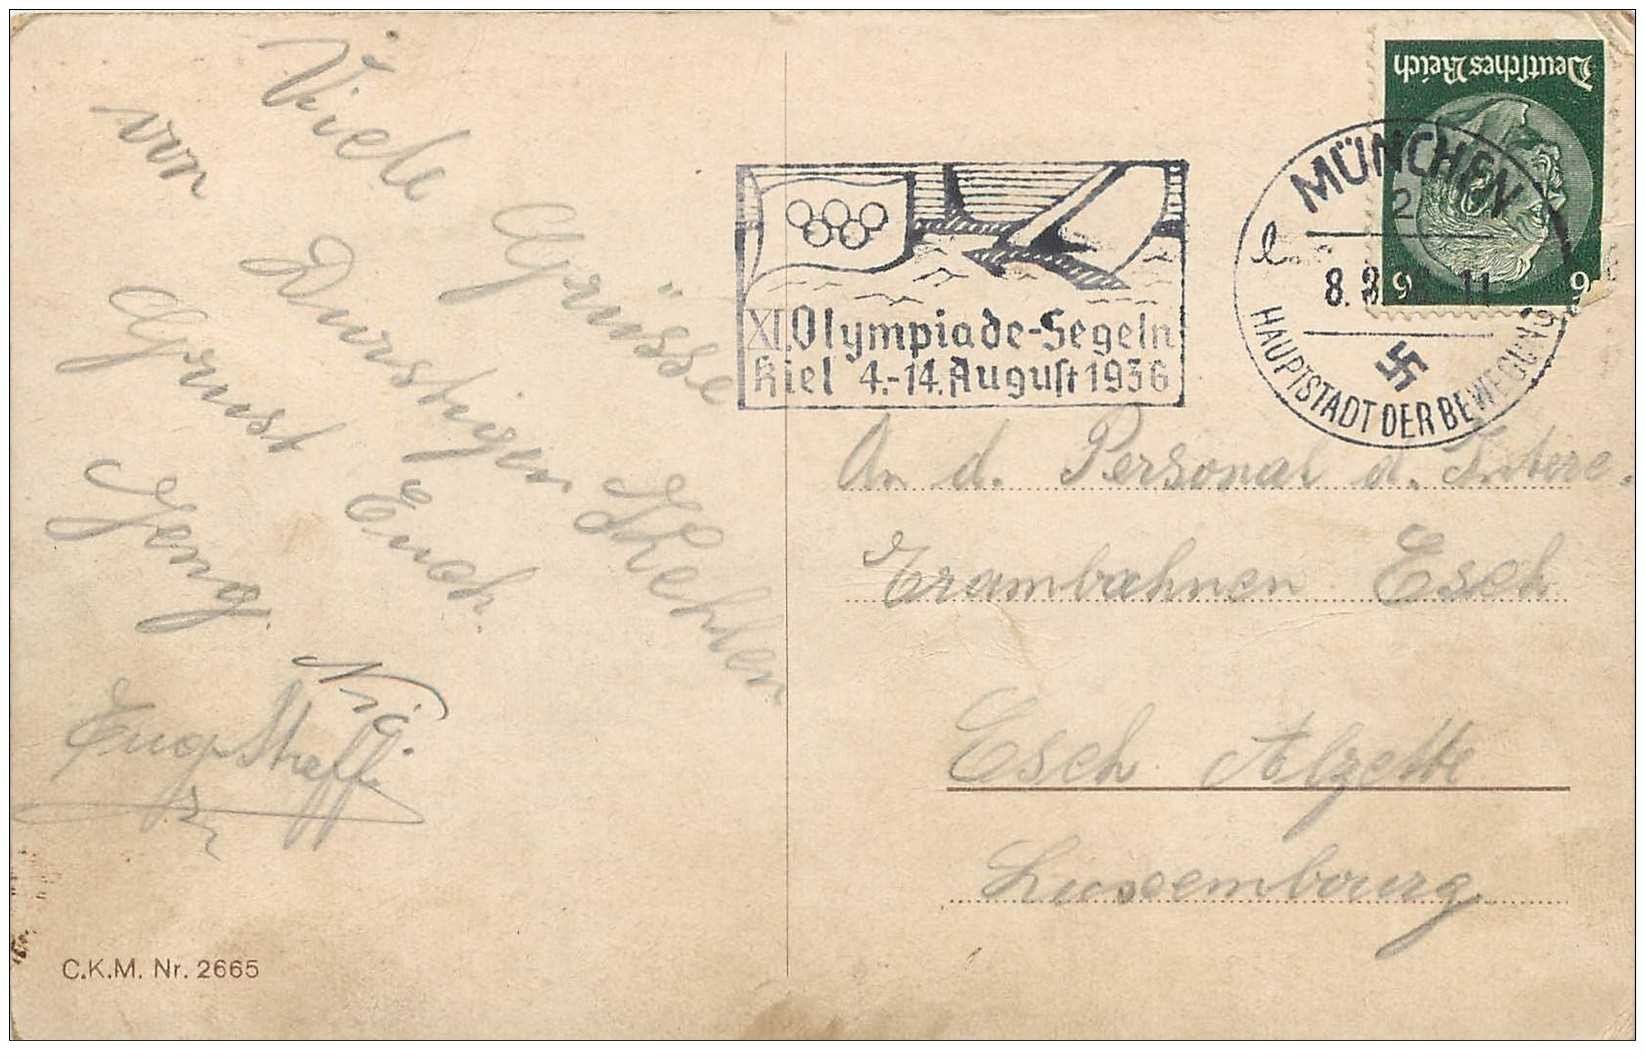 Viele Grüsse
von Durstigen Kehlen
Grust Euch
Jeng.
Nic.
Eug. Steff
XI. Olympiade-Segeln
Kiel 4.-14. August 1936
MÜNCHEN
2
l
8. 8. 11
HAUPTSTADT DER BEWEGUNG
Deutsches Reich
6 6
An d. Personal d. Interc.
Trambahnen Esch
Esch Alzette
Luxembourg
C.K.M. Nr. 2665